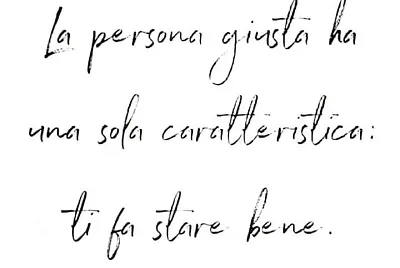 La persona giusta ha
una sola caratteristica:
ti fa stare bene.